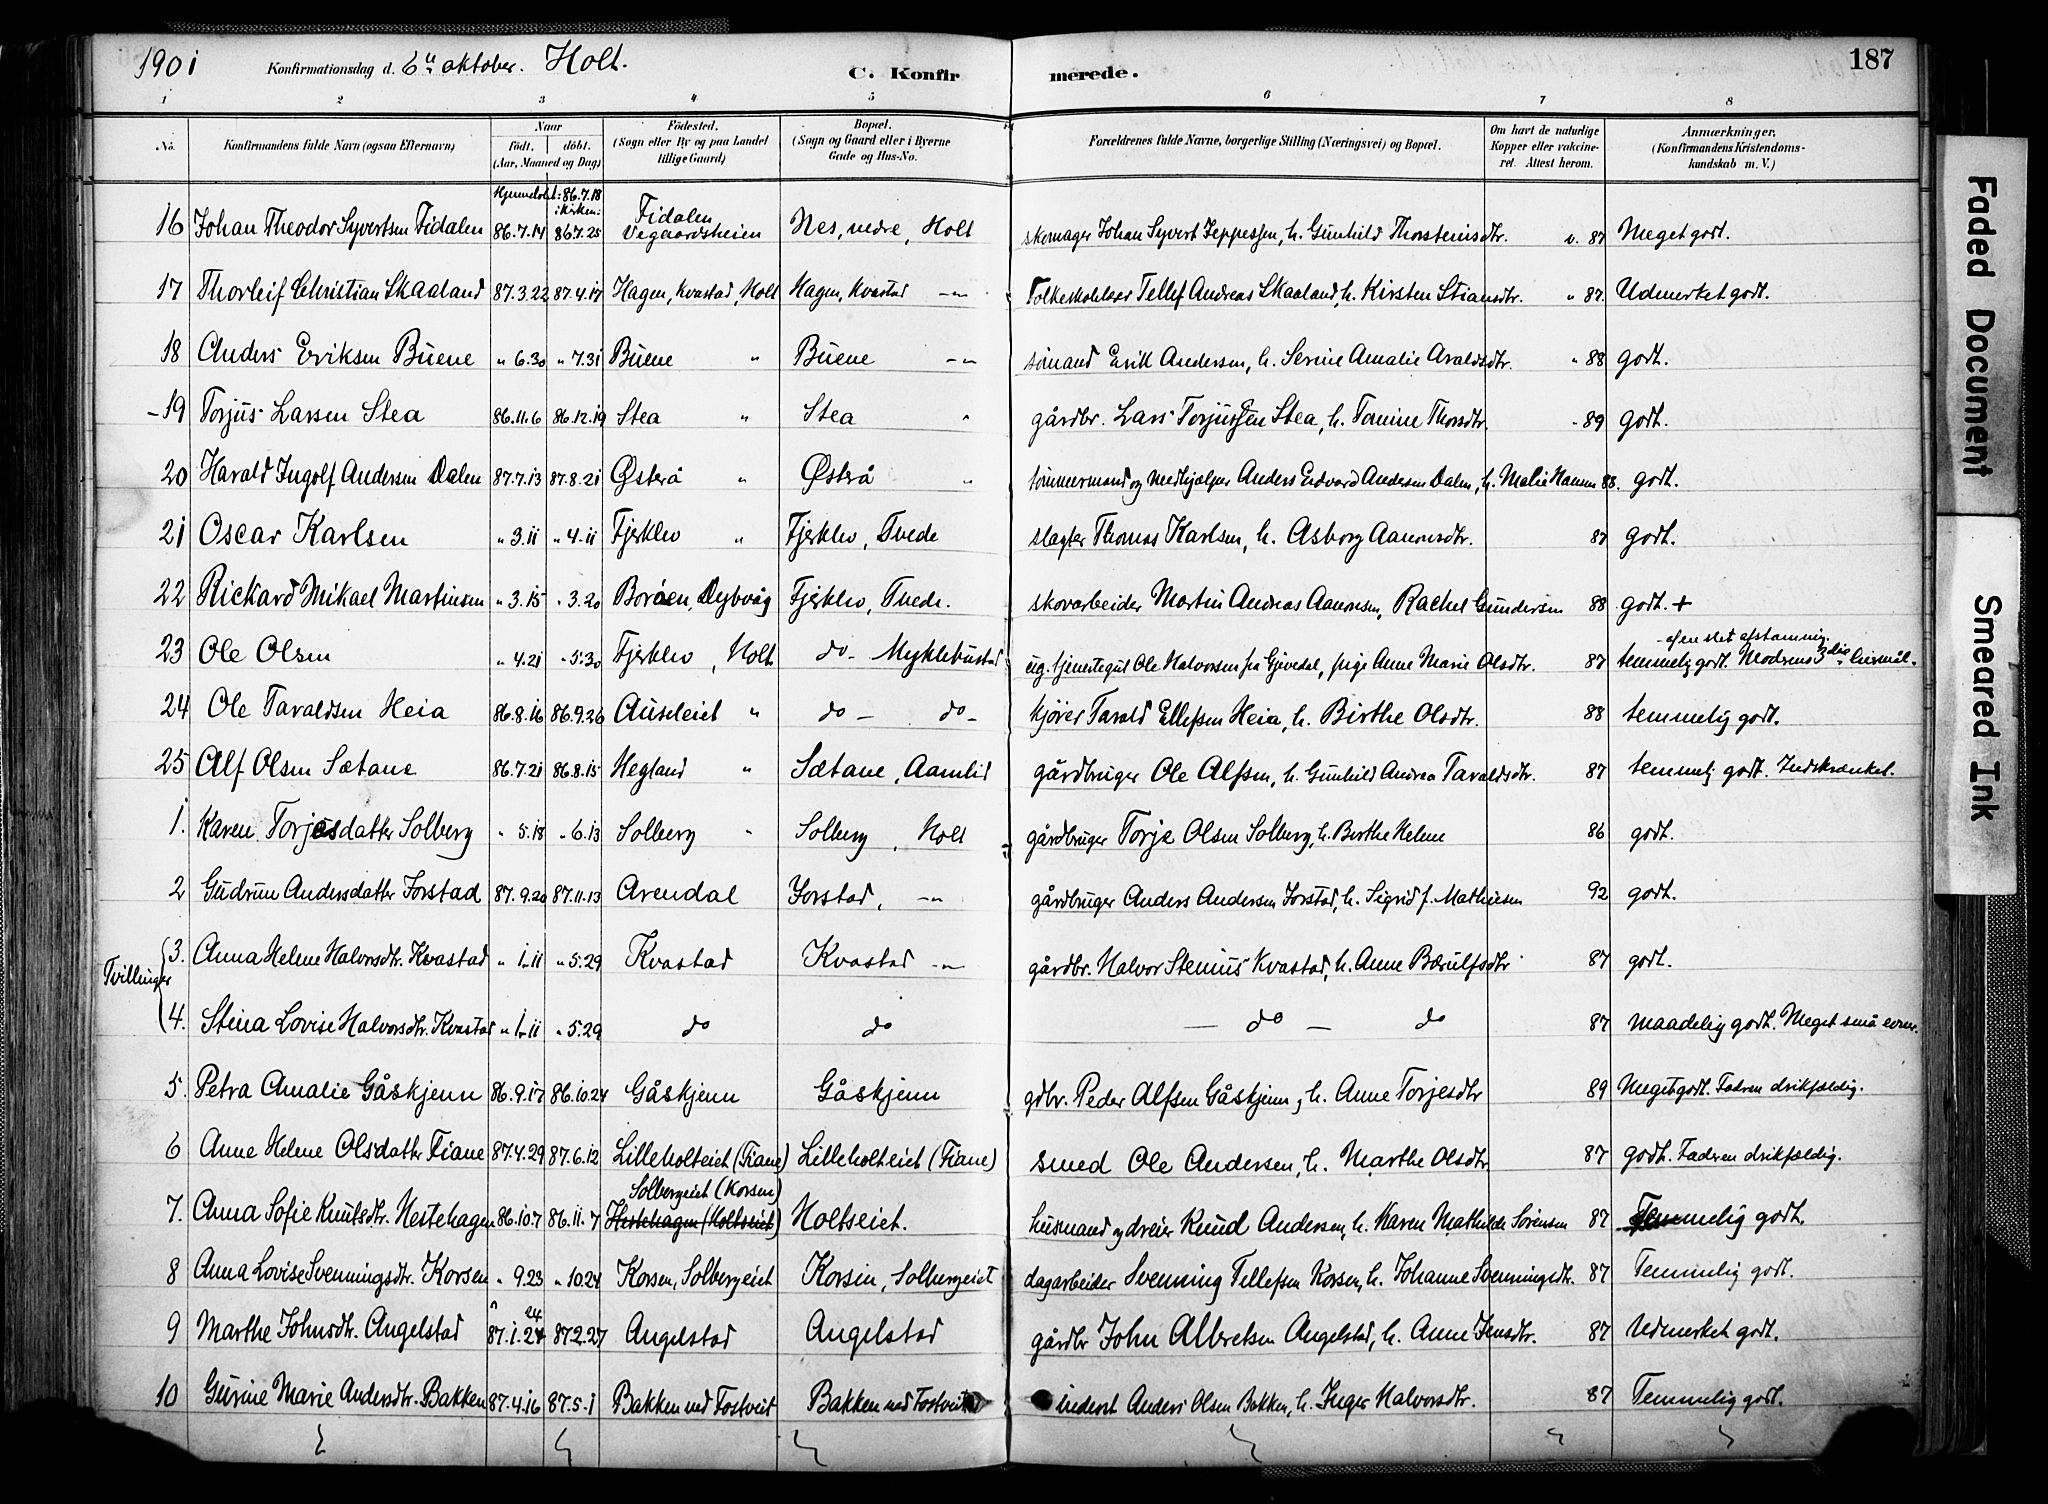 1901 Konfirmationsdag d. 6te oktober. Holt. C. Konfirmerede. 187
1 2 3 4 5 6 7 8
No. Konfirmandens fulde Navn (ogsaa Efternavn) Naar födt. döbt. (Aar, Maaned og Dag) Födested. (Sogn eller By og paa Landet tillige Gaard) Bopæl. (Sogn og Gaard eller i Byerne Gade og Hus-No. Forældrenes fulde Navne, borgerlige Stilling (Næringsvei) og Bopæl. Om havt de naturlige Kopper eller vakcineret. Attest herom. Anmærkninger. (Konfirmandens Kristendomskundskab m. V.)
Hjemmedøbt: 86.7.18 i kirken:
16 Johan Theodor Syvertsen Fidalen 86.7.14 86.7.25 Fidalen Vegaardsheien Nes, nedre, Holt skomager Johan Syvert Jeppessen, h. Gunhild Thorsteinsdtr. v. 87 Meget godt.
17 Thorleif Christian Skaaland 87.3.22 87.4.17 Hagen, Kvastad, Holt Hagen, Kvastad -"- Folkeskolelær Tellef Andreas Skaaland, h. Kirsten Stiansdtr. " 87. Udmerket godt.
18 Anders Eriksen Buene " 6.30 " 7.31 Buene " Buene -"- sømand Erik Andersen, h. Serine Amalie Avaldsdtr. " 88 godt.
-19 Torjus Larsen Stea 86.11.6 86.12.19 Stea " Stea " gårdbr. Lars Torjussen Stea, h. Tomine Thorsdtr. " 89 godt.
20 Harald Ingolf Andersen Dalen 87.7.13 87.8.21 Østerå " Østerå " tømmermand og medhjælper Anders Edvard Andersen Dalen, h. Malie Hansen 88. godt.
21 Oscar Karlsen " 3.11 " 4.11 Fjerklev " Fjerklev, Tvede slagter Thomas Karlsen, h. Asborg Aanonsdtr. 87 godt.
22 Rickard Mikael Martinsen " 3.15 " 3.20 Borøen, Dybvåg Fjerklev, Tvede. skovarbeider Martin Andreas Aanonsen, Rachel Gundersen 88 godt. +
23 Ole Olsen " 4.21 " 5.30 Fjerklev, Holt do - Myklebustad ug. tjenestegut Ole Halvorsen fra Gjøvedal, pige Anne Marie Olsdtr. 87 temmelig godt. - af en slet afstamning. Modrens 3die leiermål.
24 Ole Taraldsen Heia 86.8.16 86.9.26 Auseleiet " do - do - kjører Tarald Ellefsen Heia, h. Birthe Olsdtr. 88 temmelig godt.
25 Alf Olsen Sætane 86.7.21 86.8.15 Hegland " Sætane, Aamlid gårdbruger Ole Alfsen, h. Gunhild Andrea Taraldsdtr. 87 temmelig godt. Indskrænket.
1. Karen Torjesdatter Solberg " 5.18 " 6.13 Solberg " Solberg, Holt gårdbruger Torje Olsen Solberg, h. Berthe Helene 86 godt.
2 Gudrun Andersdatter Jorstad 87.9.20 87.11.13 Arendal Jorstad, -"- gårdbruger Anders Andersen Jorstad, h. Sigrid f. Mathiesen 92 godt.
Tvillinger
3. Anna Helene Halvorsdtr. Kvastad " 1.11 " 5.29 Kvastad Kvastad -"- gårdbr. Halvor Stenius Kvastad, h. Anne Bærulfsdtr 87 godt.
4. Stina Lovise Halvorsdtr. Kvastad " 1.11 " 5.29 do do - do - do 87 maadelig godt. Meget små evner.
5. Petra Amalie Gåskjenn 86.9.17 86.10.24 Gåskjenn Gåskjenn gdbr. Peder Alfsen Gåskjenn, h. Anne Torjesdtr 89 Meget godt. Fadren drikfældig.
6 Anne Helene Olsdatter Fiane 87.4.29 87.6.12 Lilleholteiet (Fiane) Lilleholteiet (Fiane) smed Ole Andersen, h. Marthe Olsdtr 87 godt. Faderen drikfældig.
7. Anna Sofie Knutsdtr. Hestehagen 86.10.7 86.11.7 Solbergeiet (Korsen) Hestehagen (Holtseiet) Holtseiet. husmand og dreier Knud Andersen, h. Karen Mathilde Sørensen 87 Temmelig godt.
8 Anna Lovise Svenningsdtr. Korsen " 9.23 " 10.24 Korsen, Solbergeiet Korsen, Solbergeiet dagarbeider Svenning Tellefsen Korsen, h. Johanne Svenningsdtr. 87 Temmelig godt.
9 Marthe Johnsdtr. Angelstad 87.1.24 24 87.2.27 Angelstad Angelstad gårdbr John Albretsen Angelstad, h. Anne Jensdtr. 87 Udmerket godt.
10 Gurine Marie Andersdtr. Bakken 87.4.16 87.5.1 Bakken ved Fostveit Bakken ved Fostveit inderst Anders Olsen Bakken, h. Inger Halvorsdtr. 87 Temmelig godt.
Faded Document
Smeared Ink